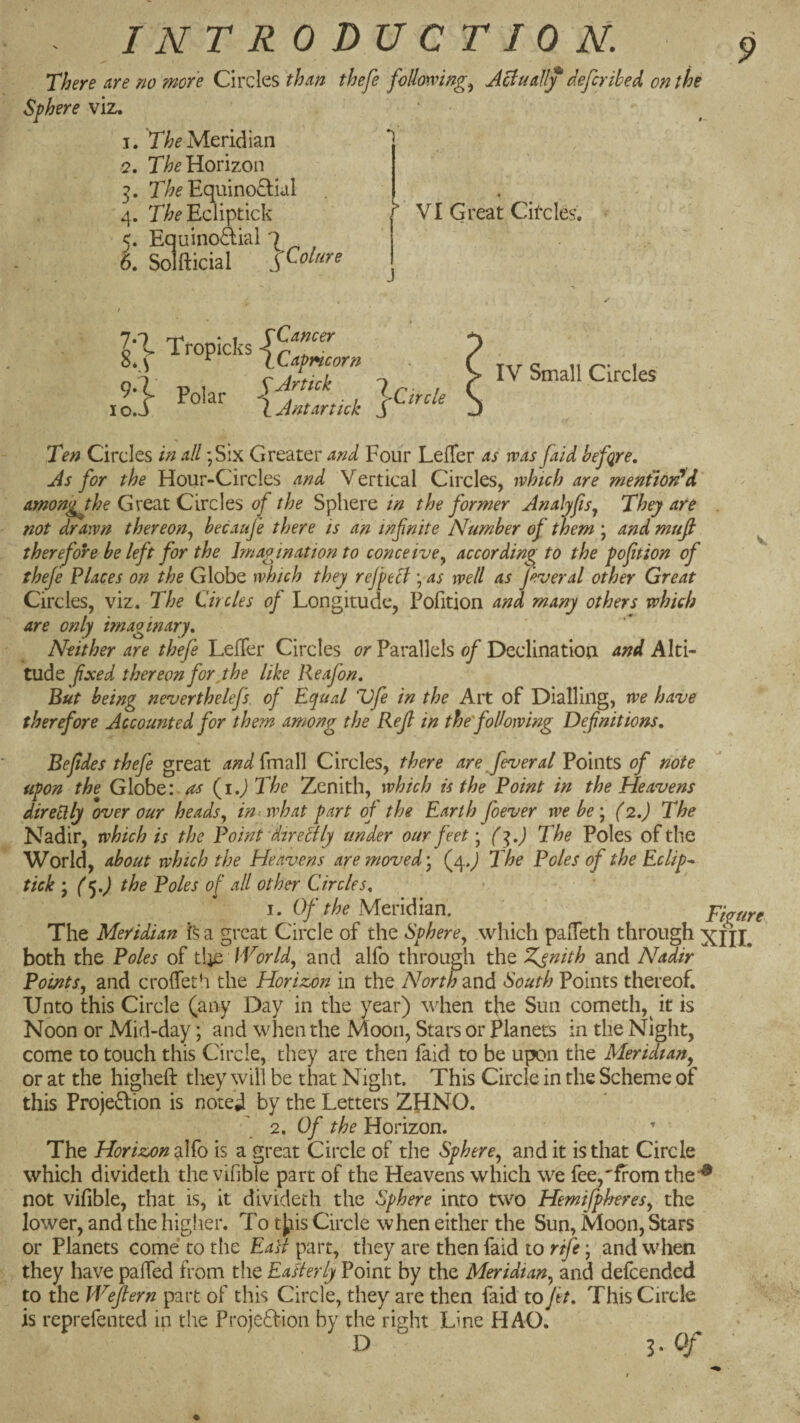 INTRODUCTION. 9
There are no more Circles than theſe following, Actually deſcribed on the
Sphere viz.
1. The Meridian
2. The Horizon
3. The Equinoctial
4. The Ecliptick
5. Equinoctial } Colure
6. Solſticial
} VI Great Circles.
7. } Tropicks { Cancer
8. { Capricorn
9. } Polar { Artick } Circle
10. { Antartick
} IV Small Circles
Ten Circles in all; Six Greater and Four Leſſer as was ſaid before.
As for the Hour-Circles and Vertical Circles, which are mention'd
among the Great Circles of the Sphere in the former Analyſis, They are
not drawn thereon, becauſe there is an infinite Number of them; and muſt
therefore be left for the Imagination to conceive, according to the poſition of
theſe Places on the Globe which they reſpect; as well as ſeveral other Great
Circles, viz. The Circles of Longitude, Poſition and many others which
are only imaginary.
Neither are theſe Leſſer Circles or Parallels of Declination and Alti-
tude fixed thereon for the like Reaſon.
But being nevertheleſs of Equal Uſe in the Art of Dialling, we have
therefore Accounted for them among the Reſt in the following Definitions.
Beſides theſe great and ſmall Circles, there are ſeveral Points of note
upon the Globe: as (1.) The Zenith, which is the Point in the Heavens
directly over our heads, in what part of the Earth ſoever we be; (2.) The
Nadir, which is the Point directly under our feet; (3.) The Poles of the
World, about which the Heavens are moved; (4.) The Poles of the Eclip-
tick; (5.) the Poles of all other Circles.
1. Of the Meridian.
Figure
XIII.
The Meridian is a great Circle of the Sphere, which paſſeth through
both the Poles of the World, and alſo through the Zenith and Nadir
Points, and croſſeth the Horizon in the North and South Points thereof.
Unto this Circle (any Day in the year) when the Sun cometh, it is
Noon or Mid-day; and when the Moon, Stars or Planets in the Night,
come to touch this Circle, they are then ſaid to be upon the Meridian,
or at the higheſt they will be that Night. This Circle in the Scheme of
this Projection is noted by the Letters ZHNO.
2. Of the Horizon.
The Horizon alſo is a great Circle of the Sphere, and it is that Circle
which divideth the viſible part of the Heavens which we ſee, from the
not viſible, that is, it divideth the Sphere into two Hemiſpheres, the
lower, and the higher. To this Circle when either the Sun, Moon, Stars
or Planets come to the Eaſt part, they are then ſaid to riſe; and when
they have paſſed from the Eaſterly Point by the Meridian, and deſcended
to the Weſtern part of this Circle, they are then ſaid to ſet. This Circle
is repreſented in the Projection by the right Line HAO.
D 3. Of